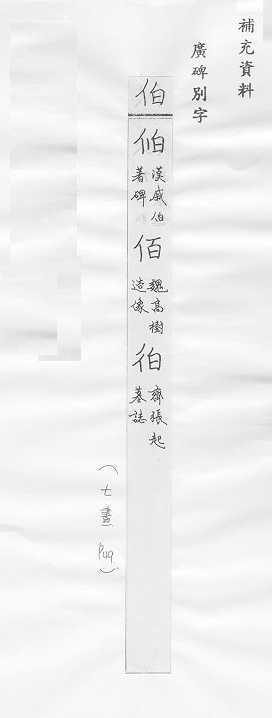 補充資料
廣碑別字
伯
伯
漢戚伯
著碑
佰
魏高樹
造像
齊張起
墓誌
(七畫 P49)